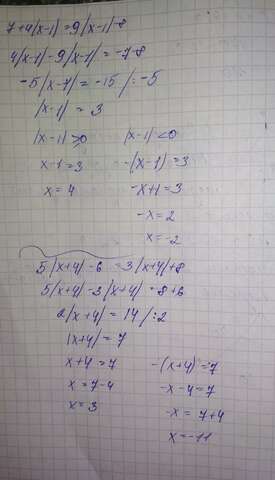 7+4|x-1|=9|x-1|-8
4|x-1|-9|x-1|=-7-8
-5|x-1|=-15/:-5
|x-1|=3
|x-1|≥0 |x-1|<0
x-1=3 -(x-1)=3
x=4 -x+1=3
-x=2
x=-2
5|x+4|-6=3|x+4|+8
5|x+4|-3|x+4|=8+6
2|x+4|=14/:2
|x+4|=7
x+4=7 -(x+4)=7
x=7-4 -x-4=7
x=3 -x=7+4
x=-11